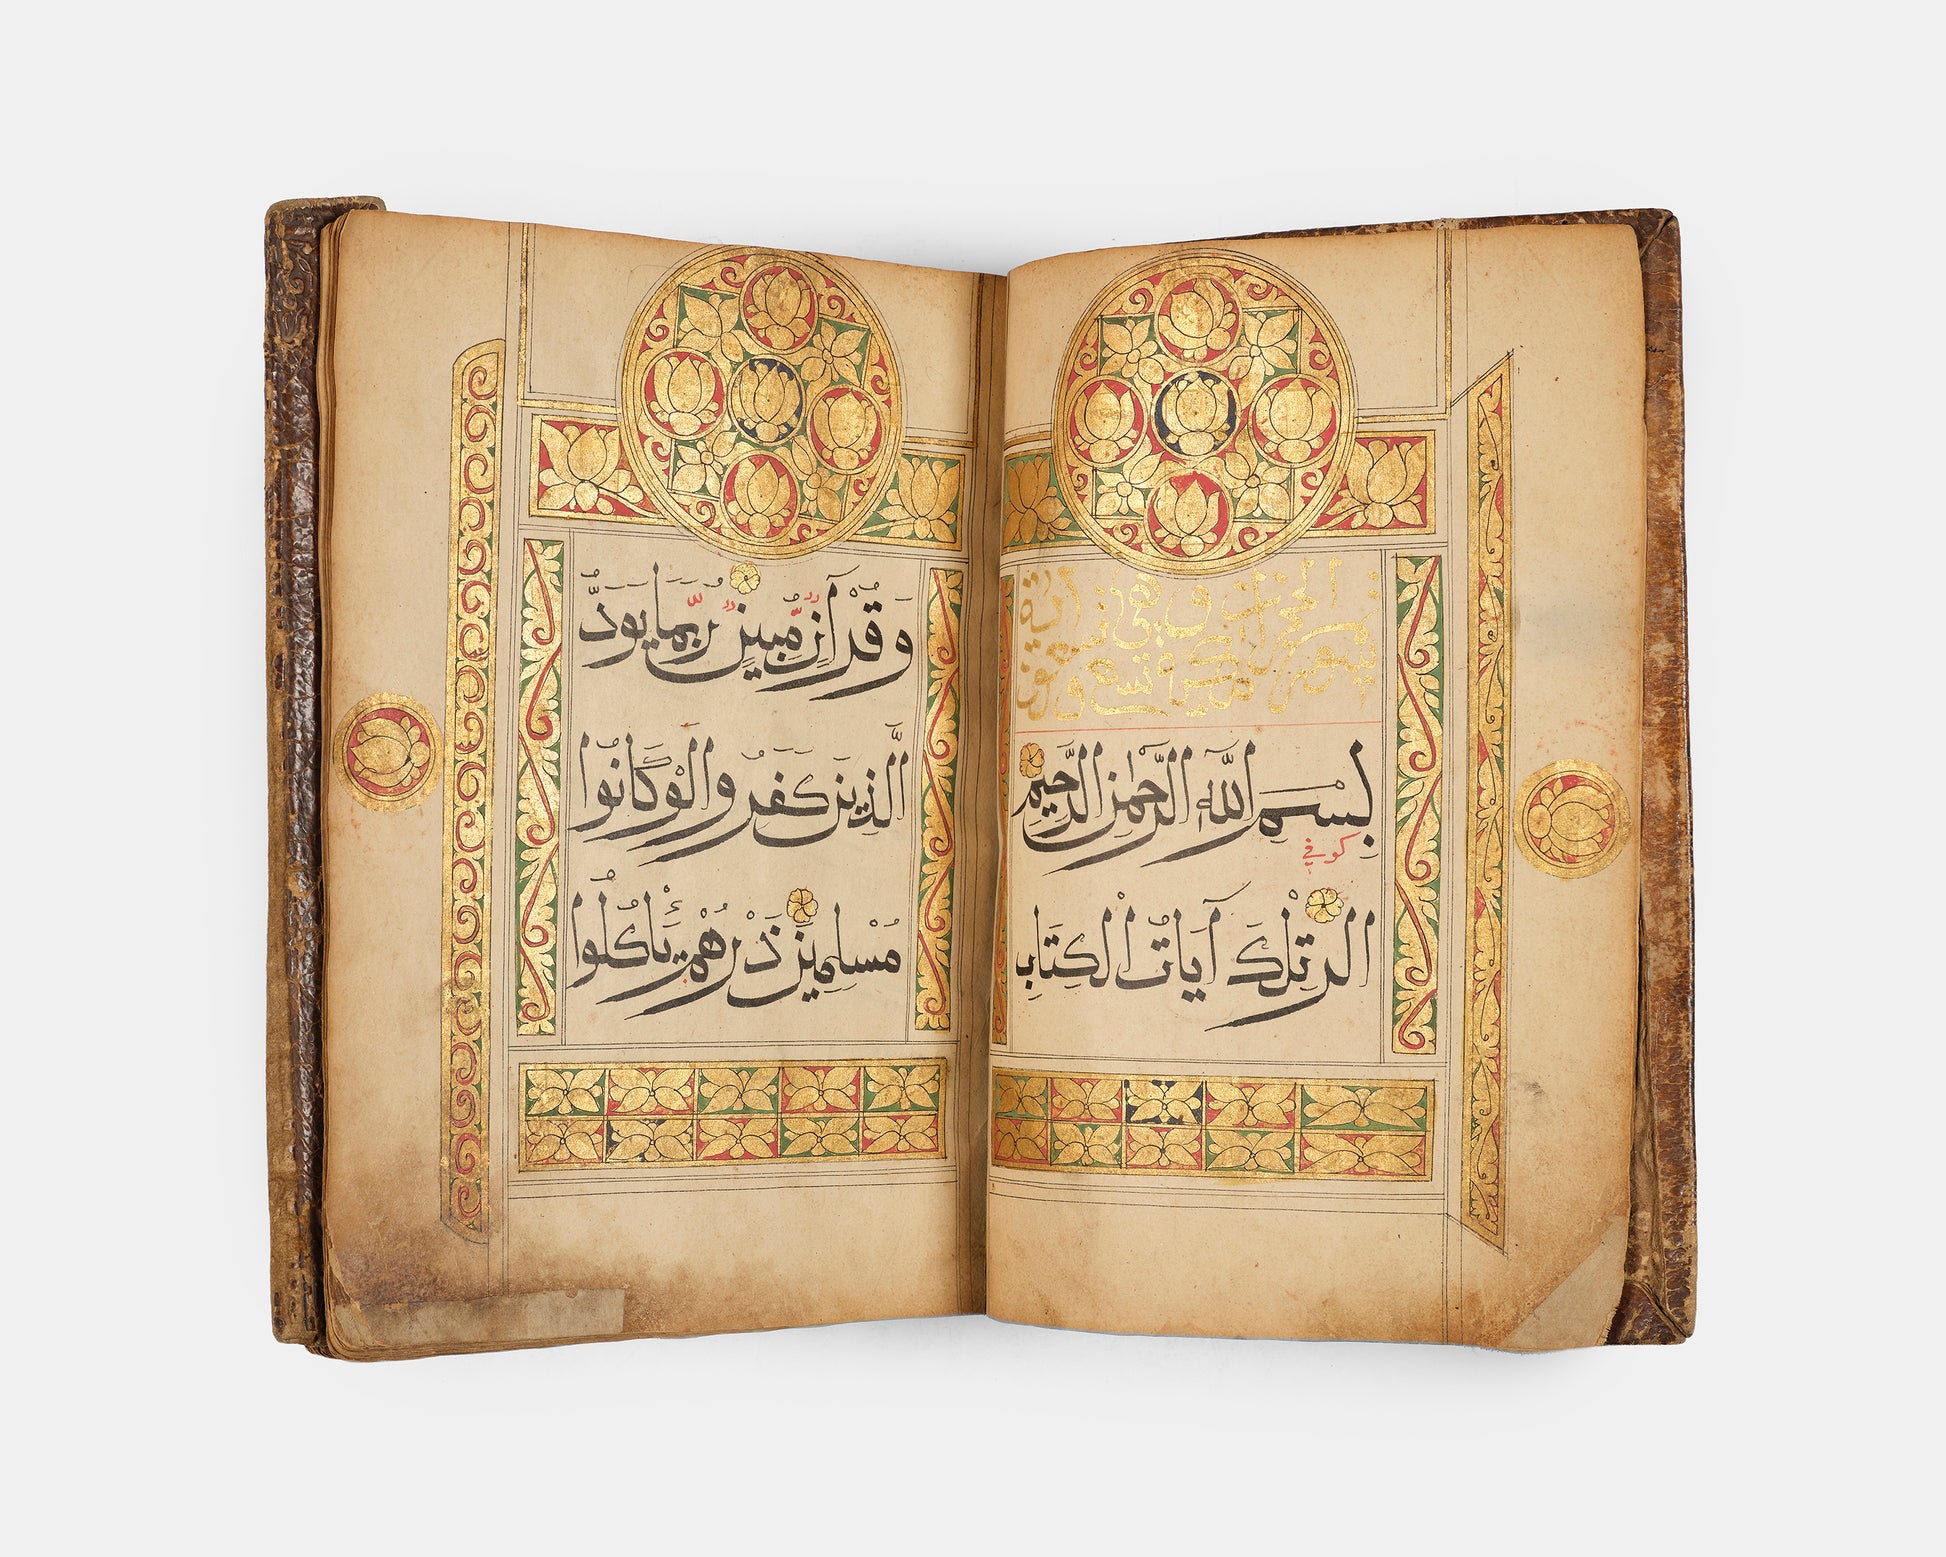 وهي آية
بِسْمِ اللَّهِ الرَّحْمٰنِ الرَّحِيمِ
كوفي
الر تِلْكَ آيَاتُ الْكِتَابِ
وَقُرْآنٍ مُّبِينٍ رُّبَمَا يَوَدُّ
الَّذِينَ كَفَرُوا لَوْ كَانُوا
مُسْلِمِينَ ذَرْهُمْ يَأْكُلُوا